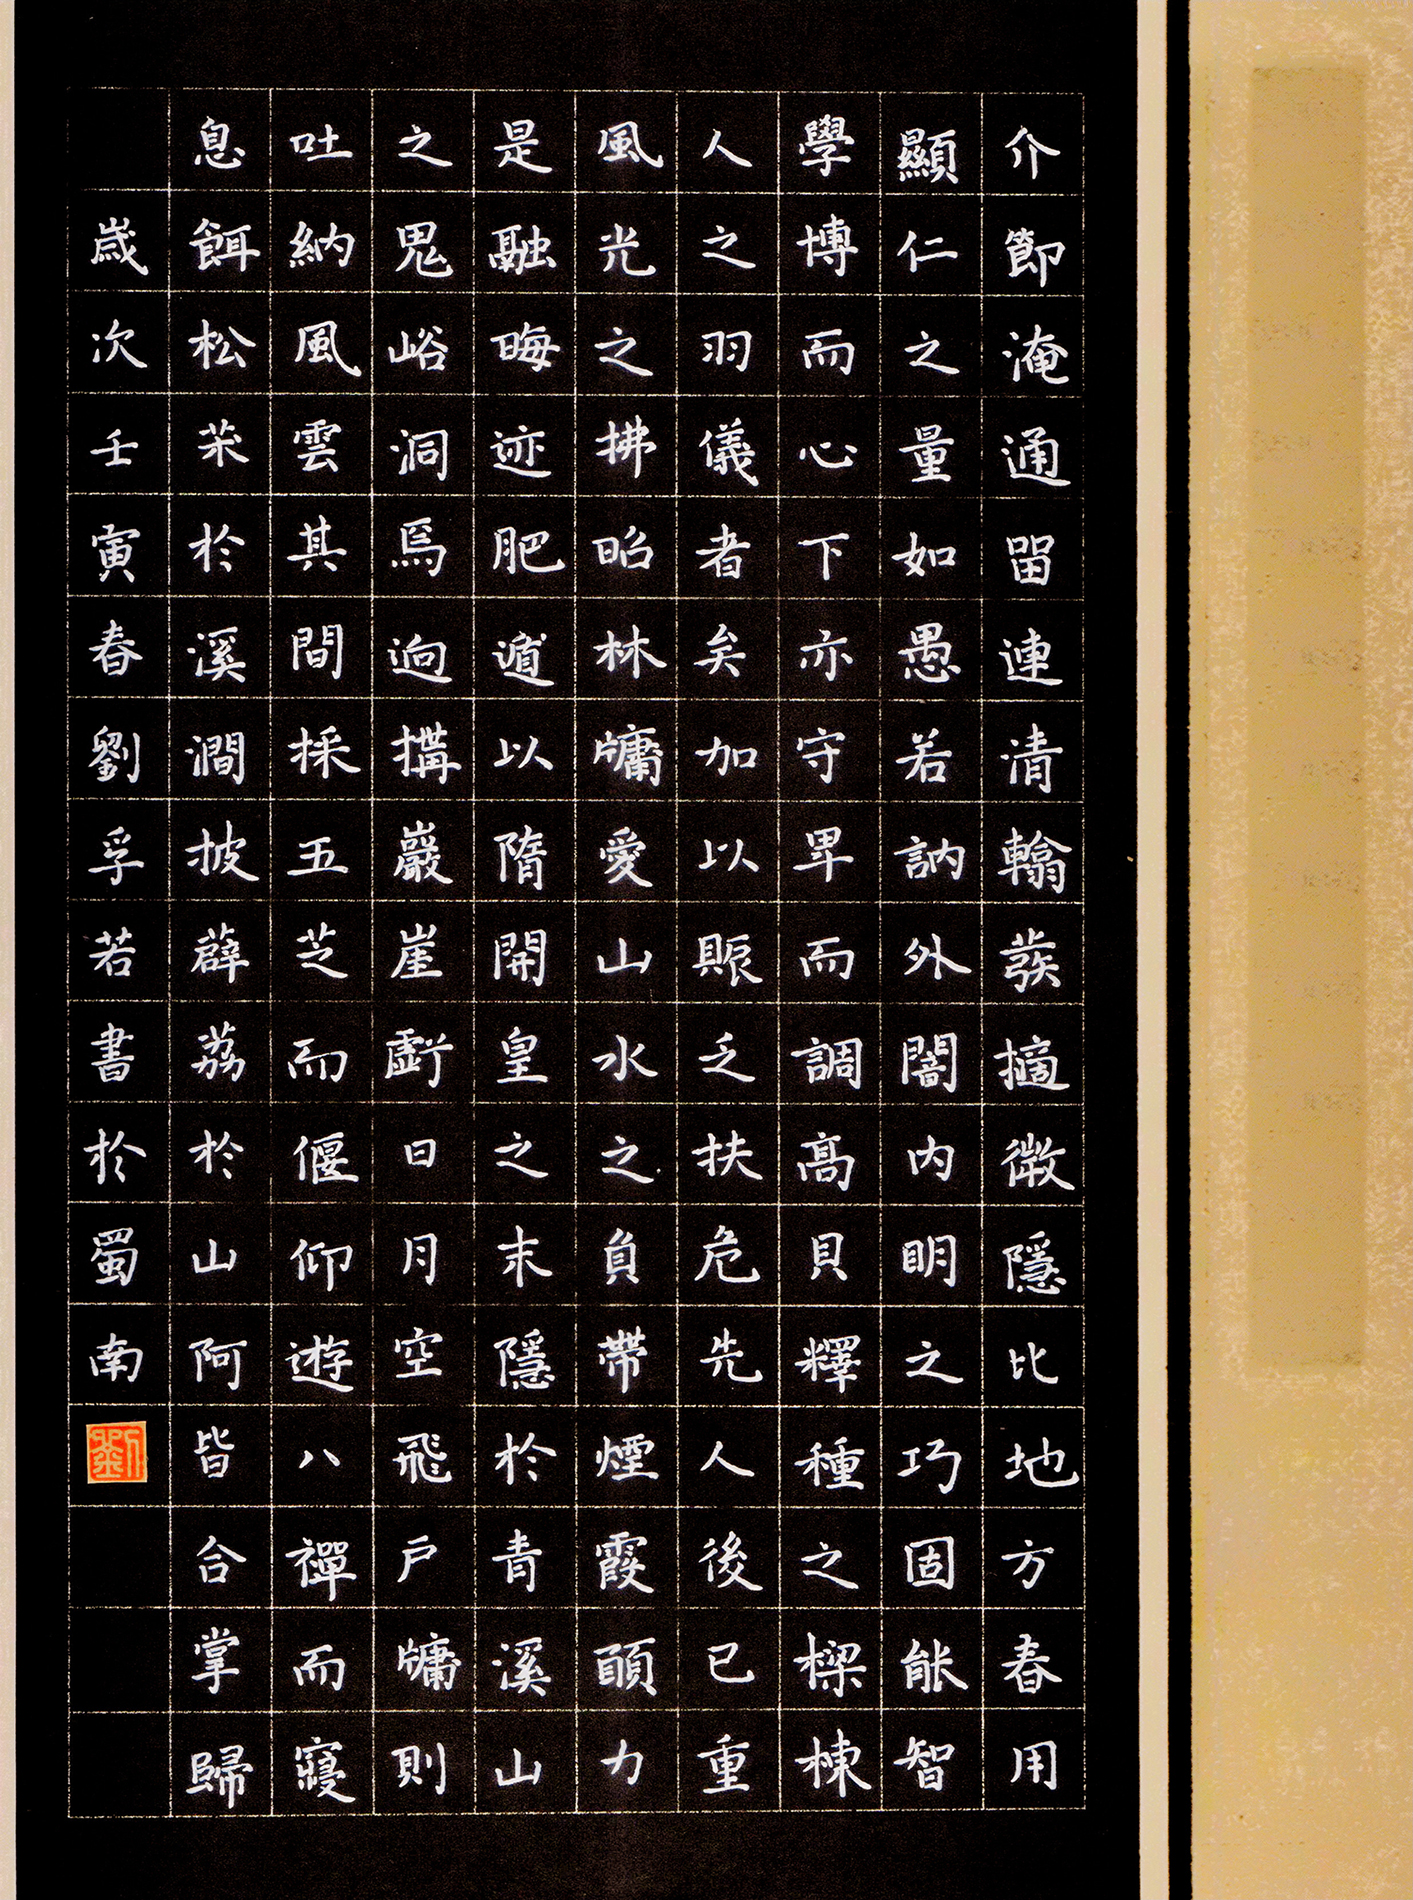 介節淹通留連清翰蕟擿微隱比地方春用
顯仁之量如愚若訥外闇內明之巧固能智
學博而心下亦守卑而調高貝釋種之樑棟
人之羽儀者矣加以賑乏扶危先人後已重
風光之拂昭林牗愛山水之負帶煙霞頤力
是融晦迹肥遁以隋開皇之末隱於青溪山
之鬼峪洞焉迥構巖崖虧日月空飛戶牗則
吐納風雲其間採五芝而偃仰遊八禪而寢
息餌松朮於溪澗披薜荔於山阿皆合掌歸
歲次壬寅春劉孚若書於蜀南
劉